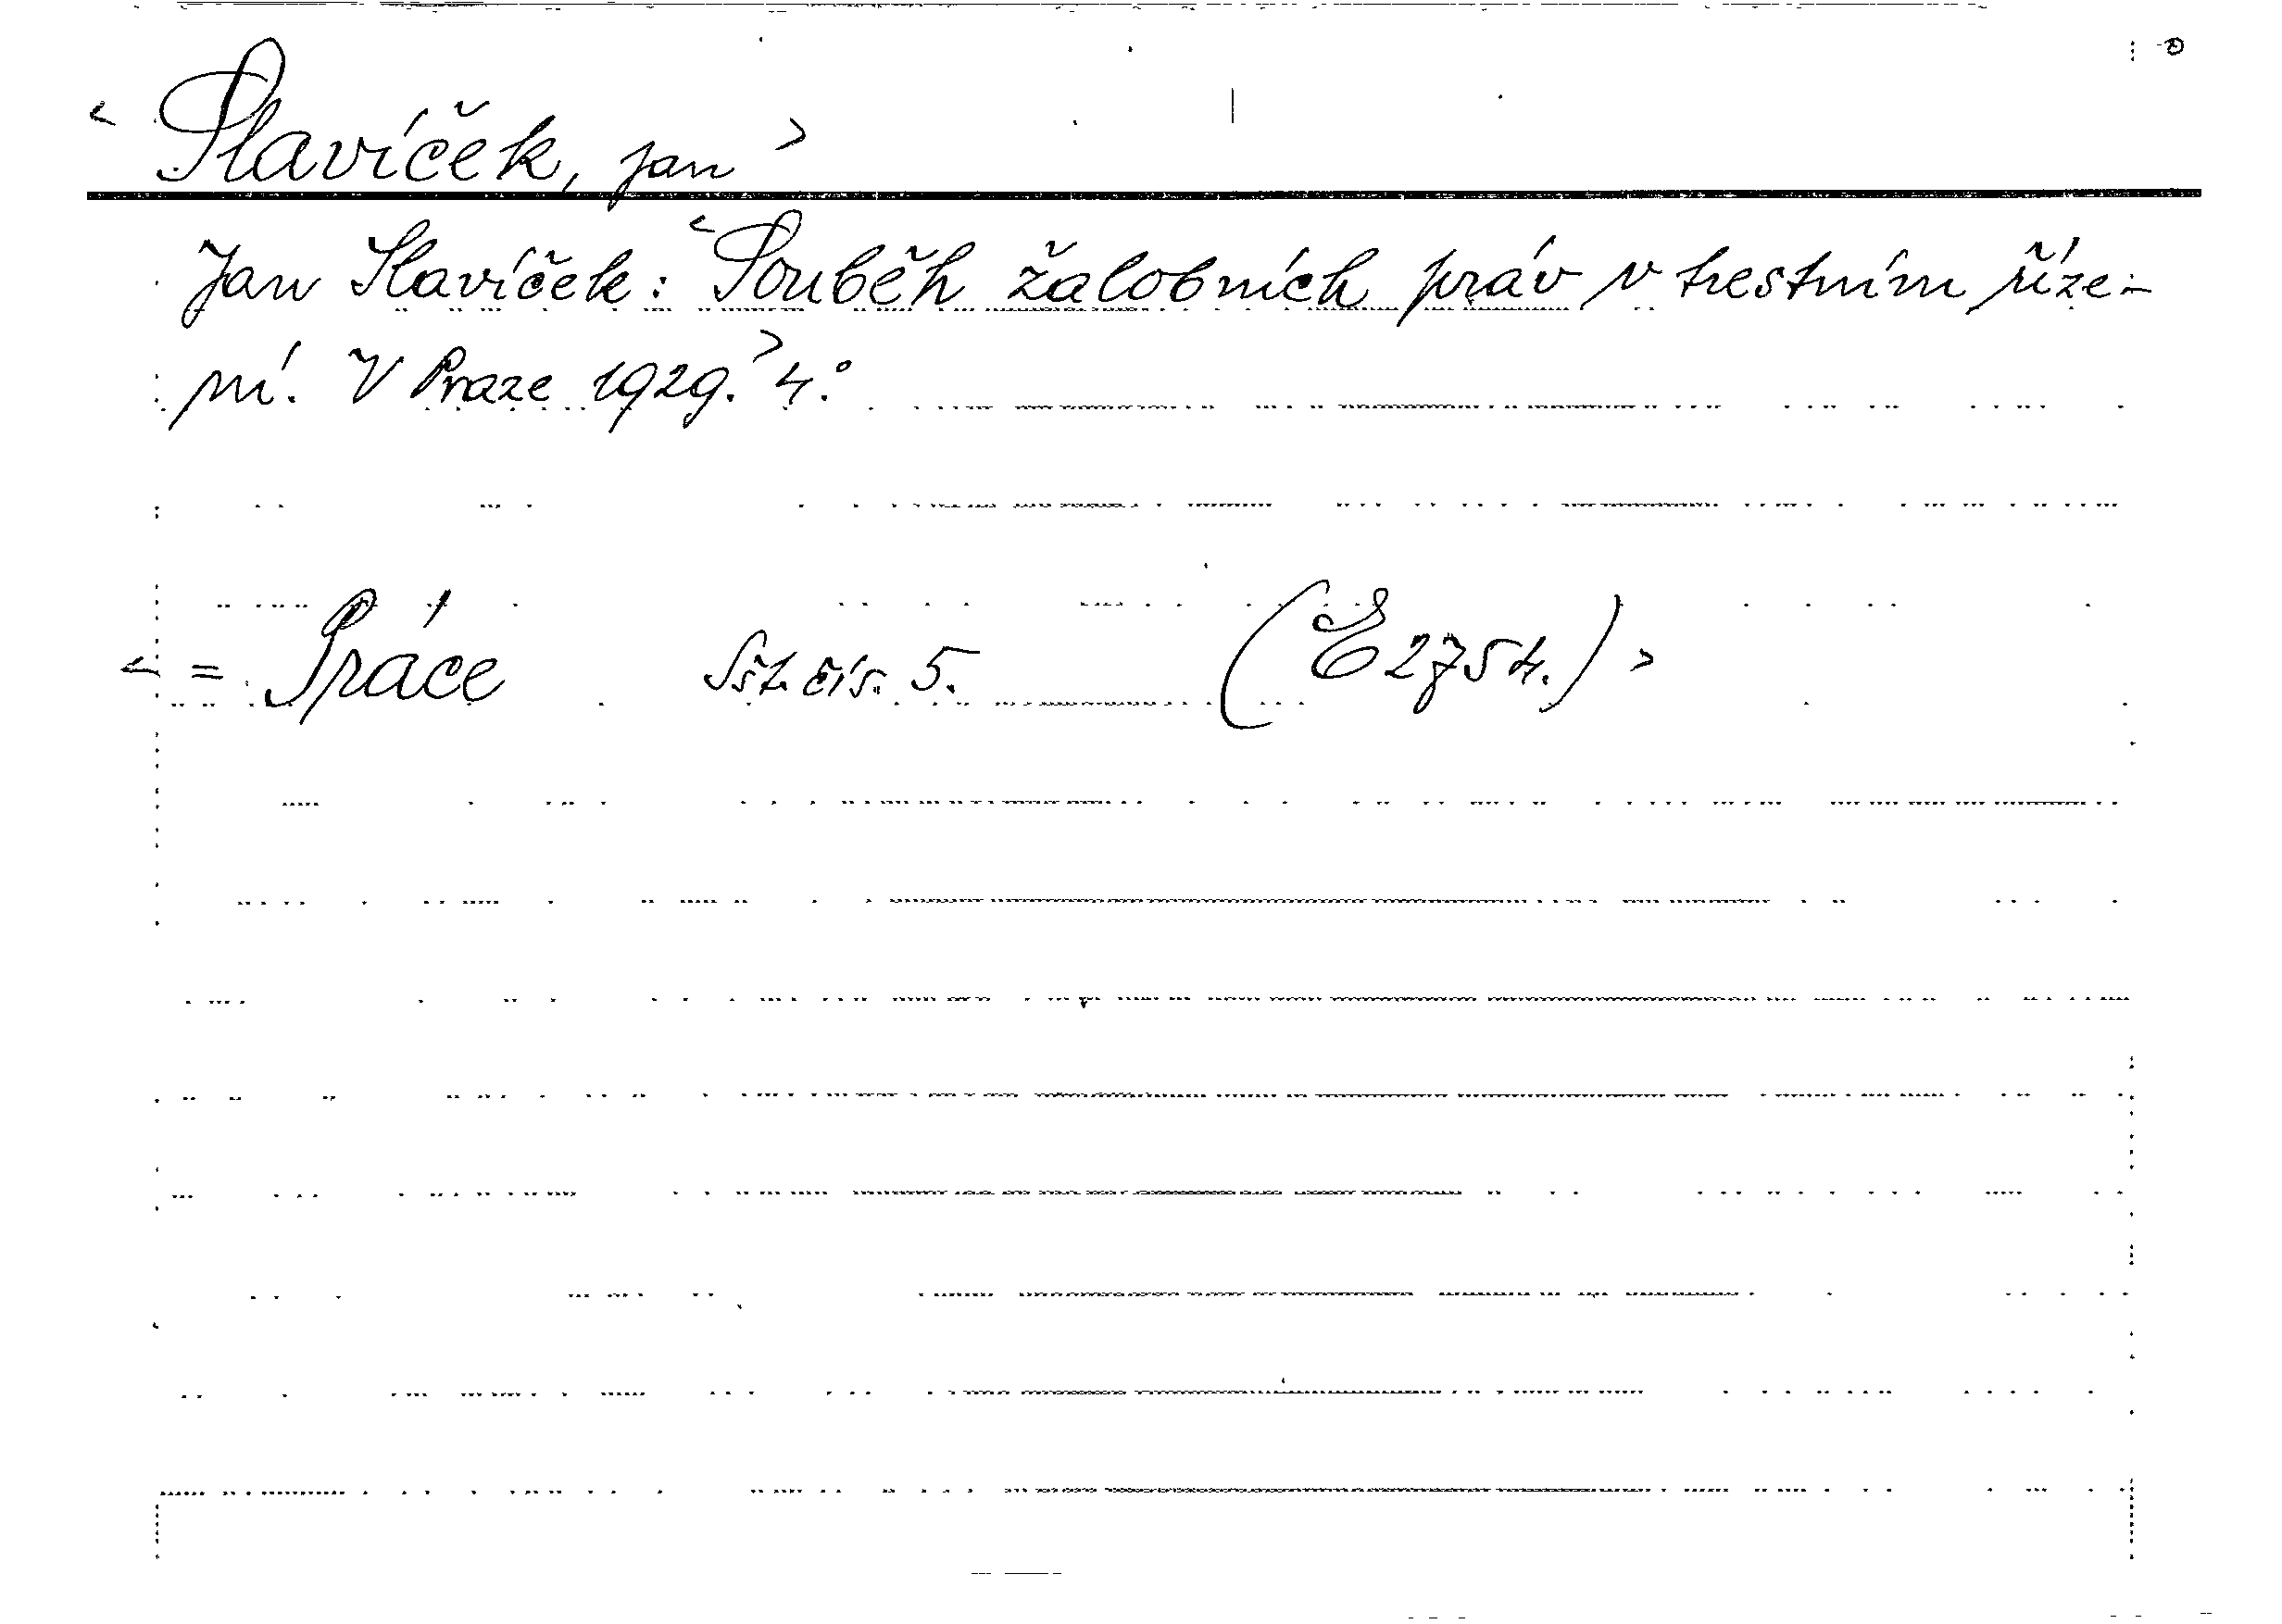 < Slavíček, Jan >
Jan Slavíček: < Souběh žalobních práv v trestním říze-
ní. V Praze 1929. > 4.°
< = Práce Sšt. čís. 5. (E 2754.) >